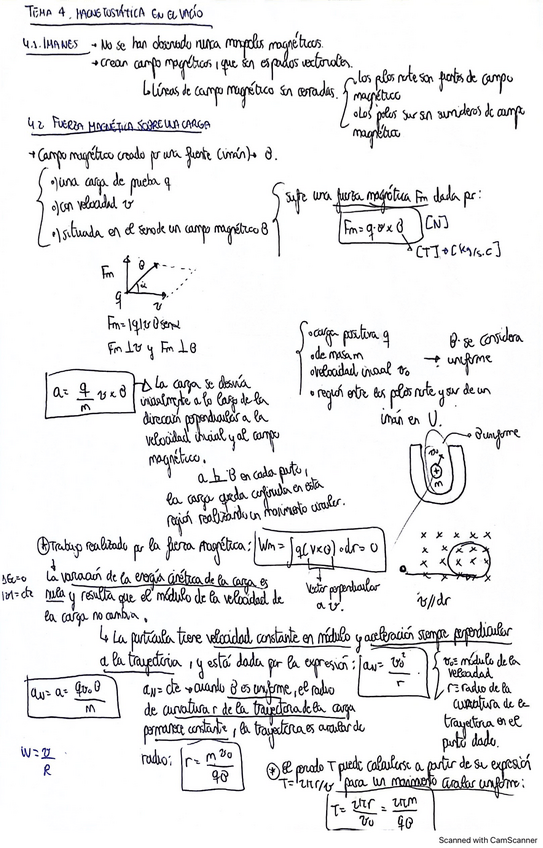 TEMA 4. MAGNETOSTÁTICA EN EL VACÍO
4.1. IMANES → No se han observado nunca monopolos magnéticos.
→ crean campo magnéticos, que son espacios vectoriales.
↳ Líneas de campo magnético son cerradas.
• los polos norte son fuentes de campo magnético
• Los polos sur son sumideros de campo magnético
4.2 FUERZA MAGNÉTICA SOBRE UNA CARGA
→ Campo magnético creado por una fuente (imán) → B.
•) una carga de prueba q
•) con velocidad v
•) situada en el seno de un campo magnético B
sufre una fuerza magnética Fm dada por:
Fm = q · v x B [N]
[T] → [kg/s.C]
Fm
B
α
q
v
Fm = |q| v B senα
Fm ⊥ v y Fm ⊥ B
• carga positiva q
• de masa m
• velocidad inicial v₀
• región entre los polos norte y sur de un imán en U.
→ B se considera uniforme
a = q/m v x B
La carga se desvía
inicialmente a lo largo de la
dirección perpendicular a la
velocidad inicial y al campo
magnético.
B uniforme
v₀
+
m
a ⊥ B en cada punto,
la carga queda confinada en esta
región realizando un movimiento circular.
Trabajo realizado por la fuerza magnética: Wm = ∫ q(v x B) · dr = 0
Vector perpendicular
a v.
v // dr
ΔEc=0
|v|=cte
La variación de la energía cinética de la carga es
nula y resulta que el módulo de la velocidad de
la carga no cambia.
↳ La partícula tiene velocidad constante en módulo y aceleración siempre perpendicular
a la trayectoria, y está dada por la expresión: aN = v₀²/r
v₀ = módulo de la velocidad
r = radio de la curvatura de la trayectoria en el punto dado.
aN = a = qv₀B/m
aN = cte → cuando B es uniforme, el radio
de curvatura r de la trayectoria de la carga
permanece constante, la trayectoria es circular de
radio: r = m v₀/qB
W = v/R
El periodo T puede calcularse a partir de su expresión
T = 2πr/v para un movimiento circular uniforme:
T = 2πr/v₀ = 2πm/qB
Scanned with CamScanner